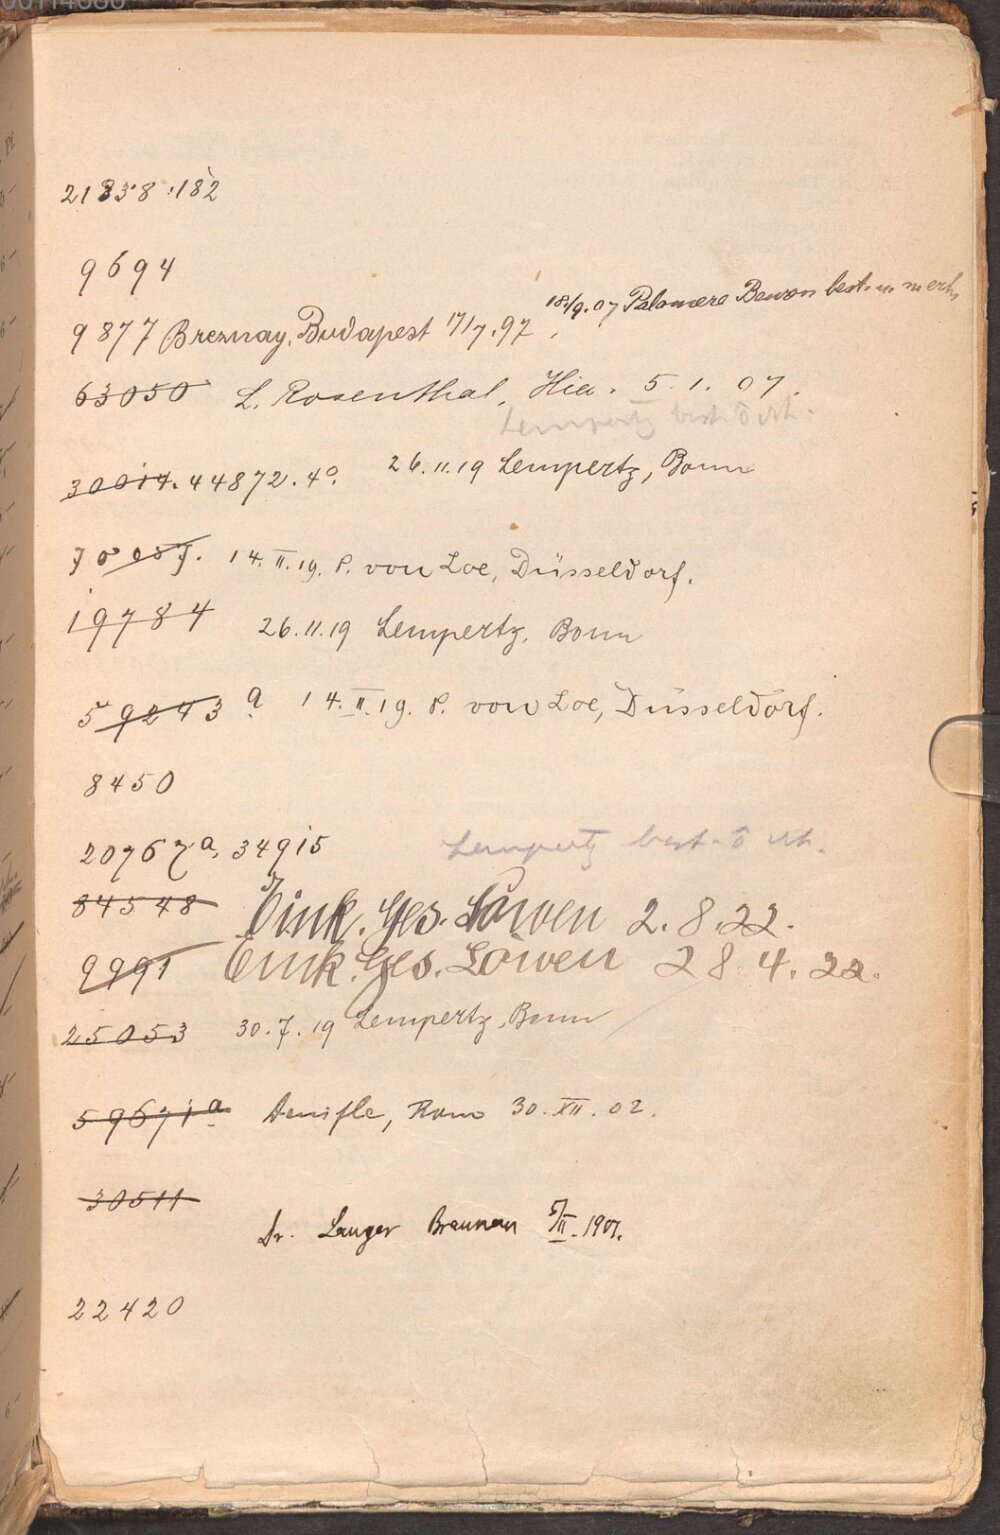 21838.182
9694
9877 Breznay, Budapest 17/7.97. 18/9.07 best.
63050 L. Rosenthal, 5.1.07.
Lempertz best.
30017. 44872.4°. 26.11.19 Lempertz, Bonn
70087. 14.II.19. P. von Loe, Düsseldorf.
19784 26.11.19 Lempertz, Bonn
59243 a 14.II.19. P. von Loe, Düsseldorf.
8450
20767a, 34915 Lempertz best.
84548 Eink. Ges. Löwen 2.8.22.
9991 Eink. Ges. Löwen 28.4.22.
25053 30.7.19 Lempertz, Bonn
59671a Denifle, Rom 30.XII.02.
30511
Dr. Langer Braunau 5/II.1901.
22420